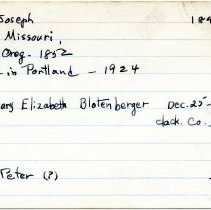 Joseph 184
Missouri,
Oreg - 1852
in Portland - 1924
Elizabeth Blotenberger Dec. 25 -
Clack. Co.
Peter (?)